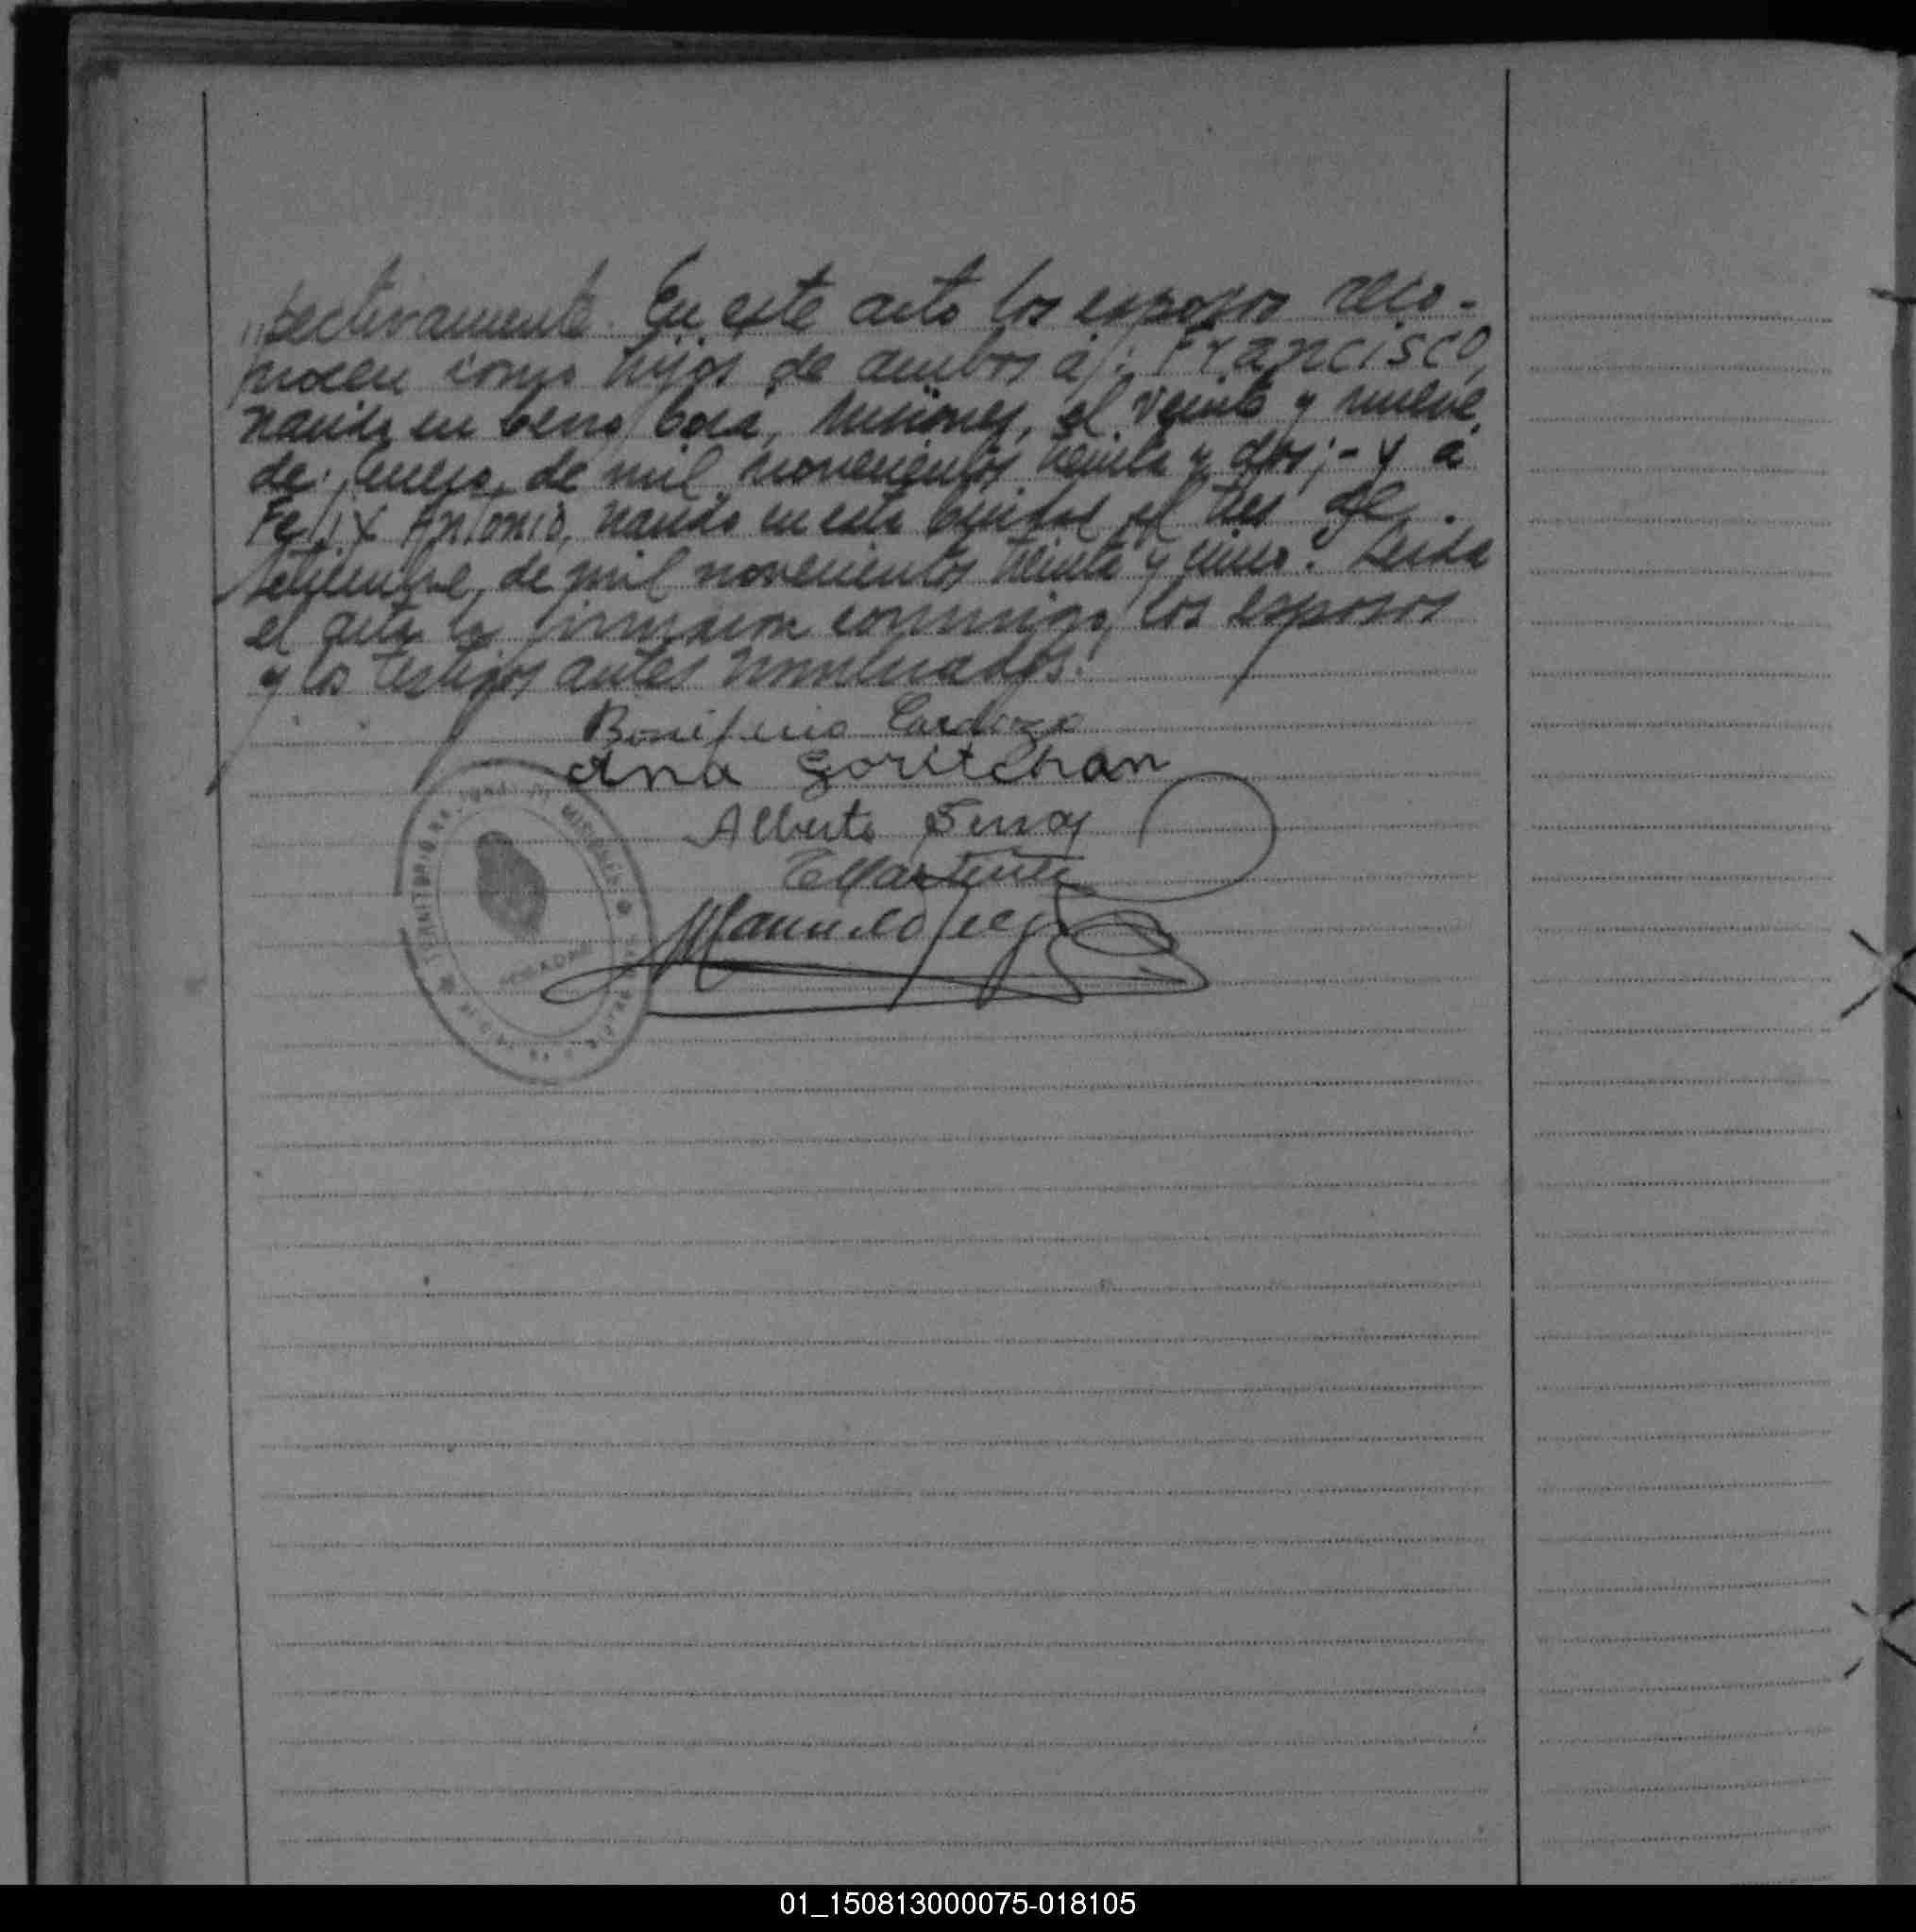 pectivamente. En este acto los esposos reco-
nocen como hijos de ambos á: FRANCISCO,
nacido en Cerro Corá, Misiones, el veinte y nueve
de Enero, de mil novecientos treinta y dos;- y á
Felix Antonio, nacido en esta Ciudad el tres de
Setiembre, de mil novecientos treinta y cinco. Leida
el acta la firmaron conmigo, los esposos
y los testigos antes nombrados.
Bonifacio Cardozo
Ana Goritchan
Alberto
Manuel
TERRITORIO MISIONES
POSADAS
01_150813000075-018105